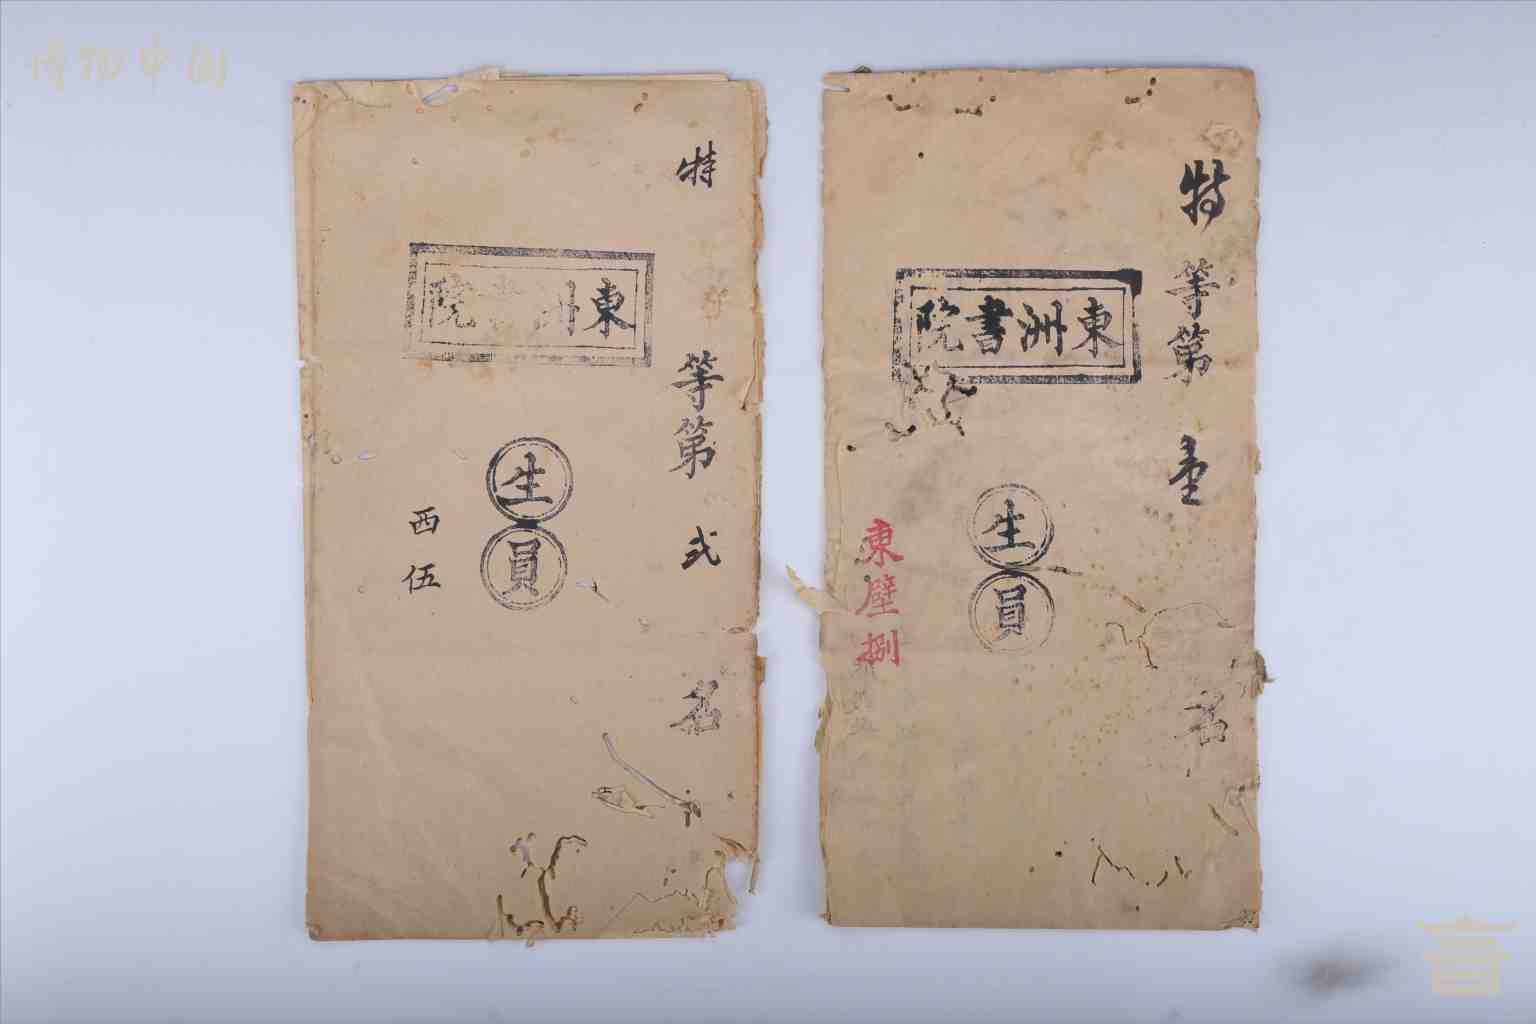 博物中國
特等第弍名
東洲書院
生員
西伍
特等第壹名
東洲書院
生員
東壁捌